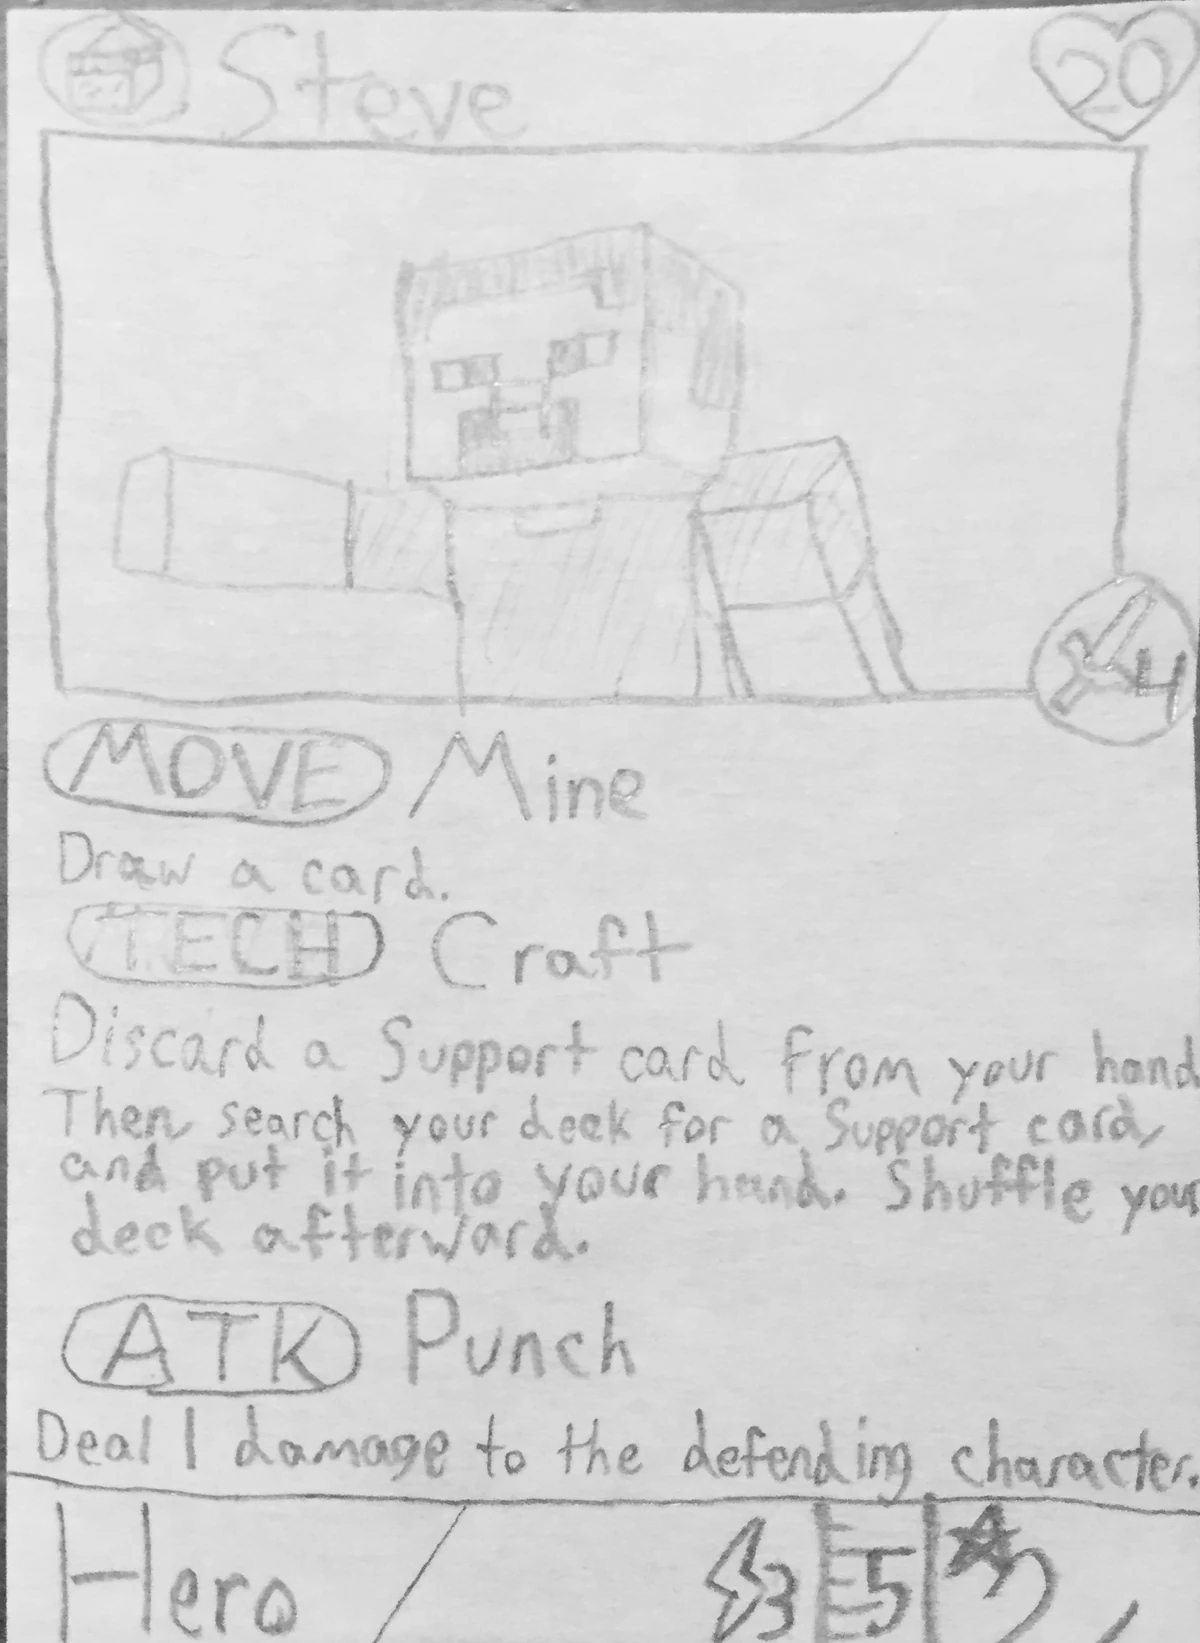 Steve
20
4
MOVE Mine
Draw a card.
TECH Craft
Discard a Support card from your hand
Then search your deck for a Support card,
and put it into your hand. Shuffle your
deck afterward.
ATK Punch
Deal 1 damage to the defending character.
Hero 3 5